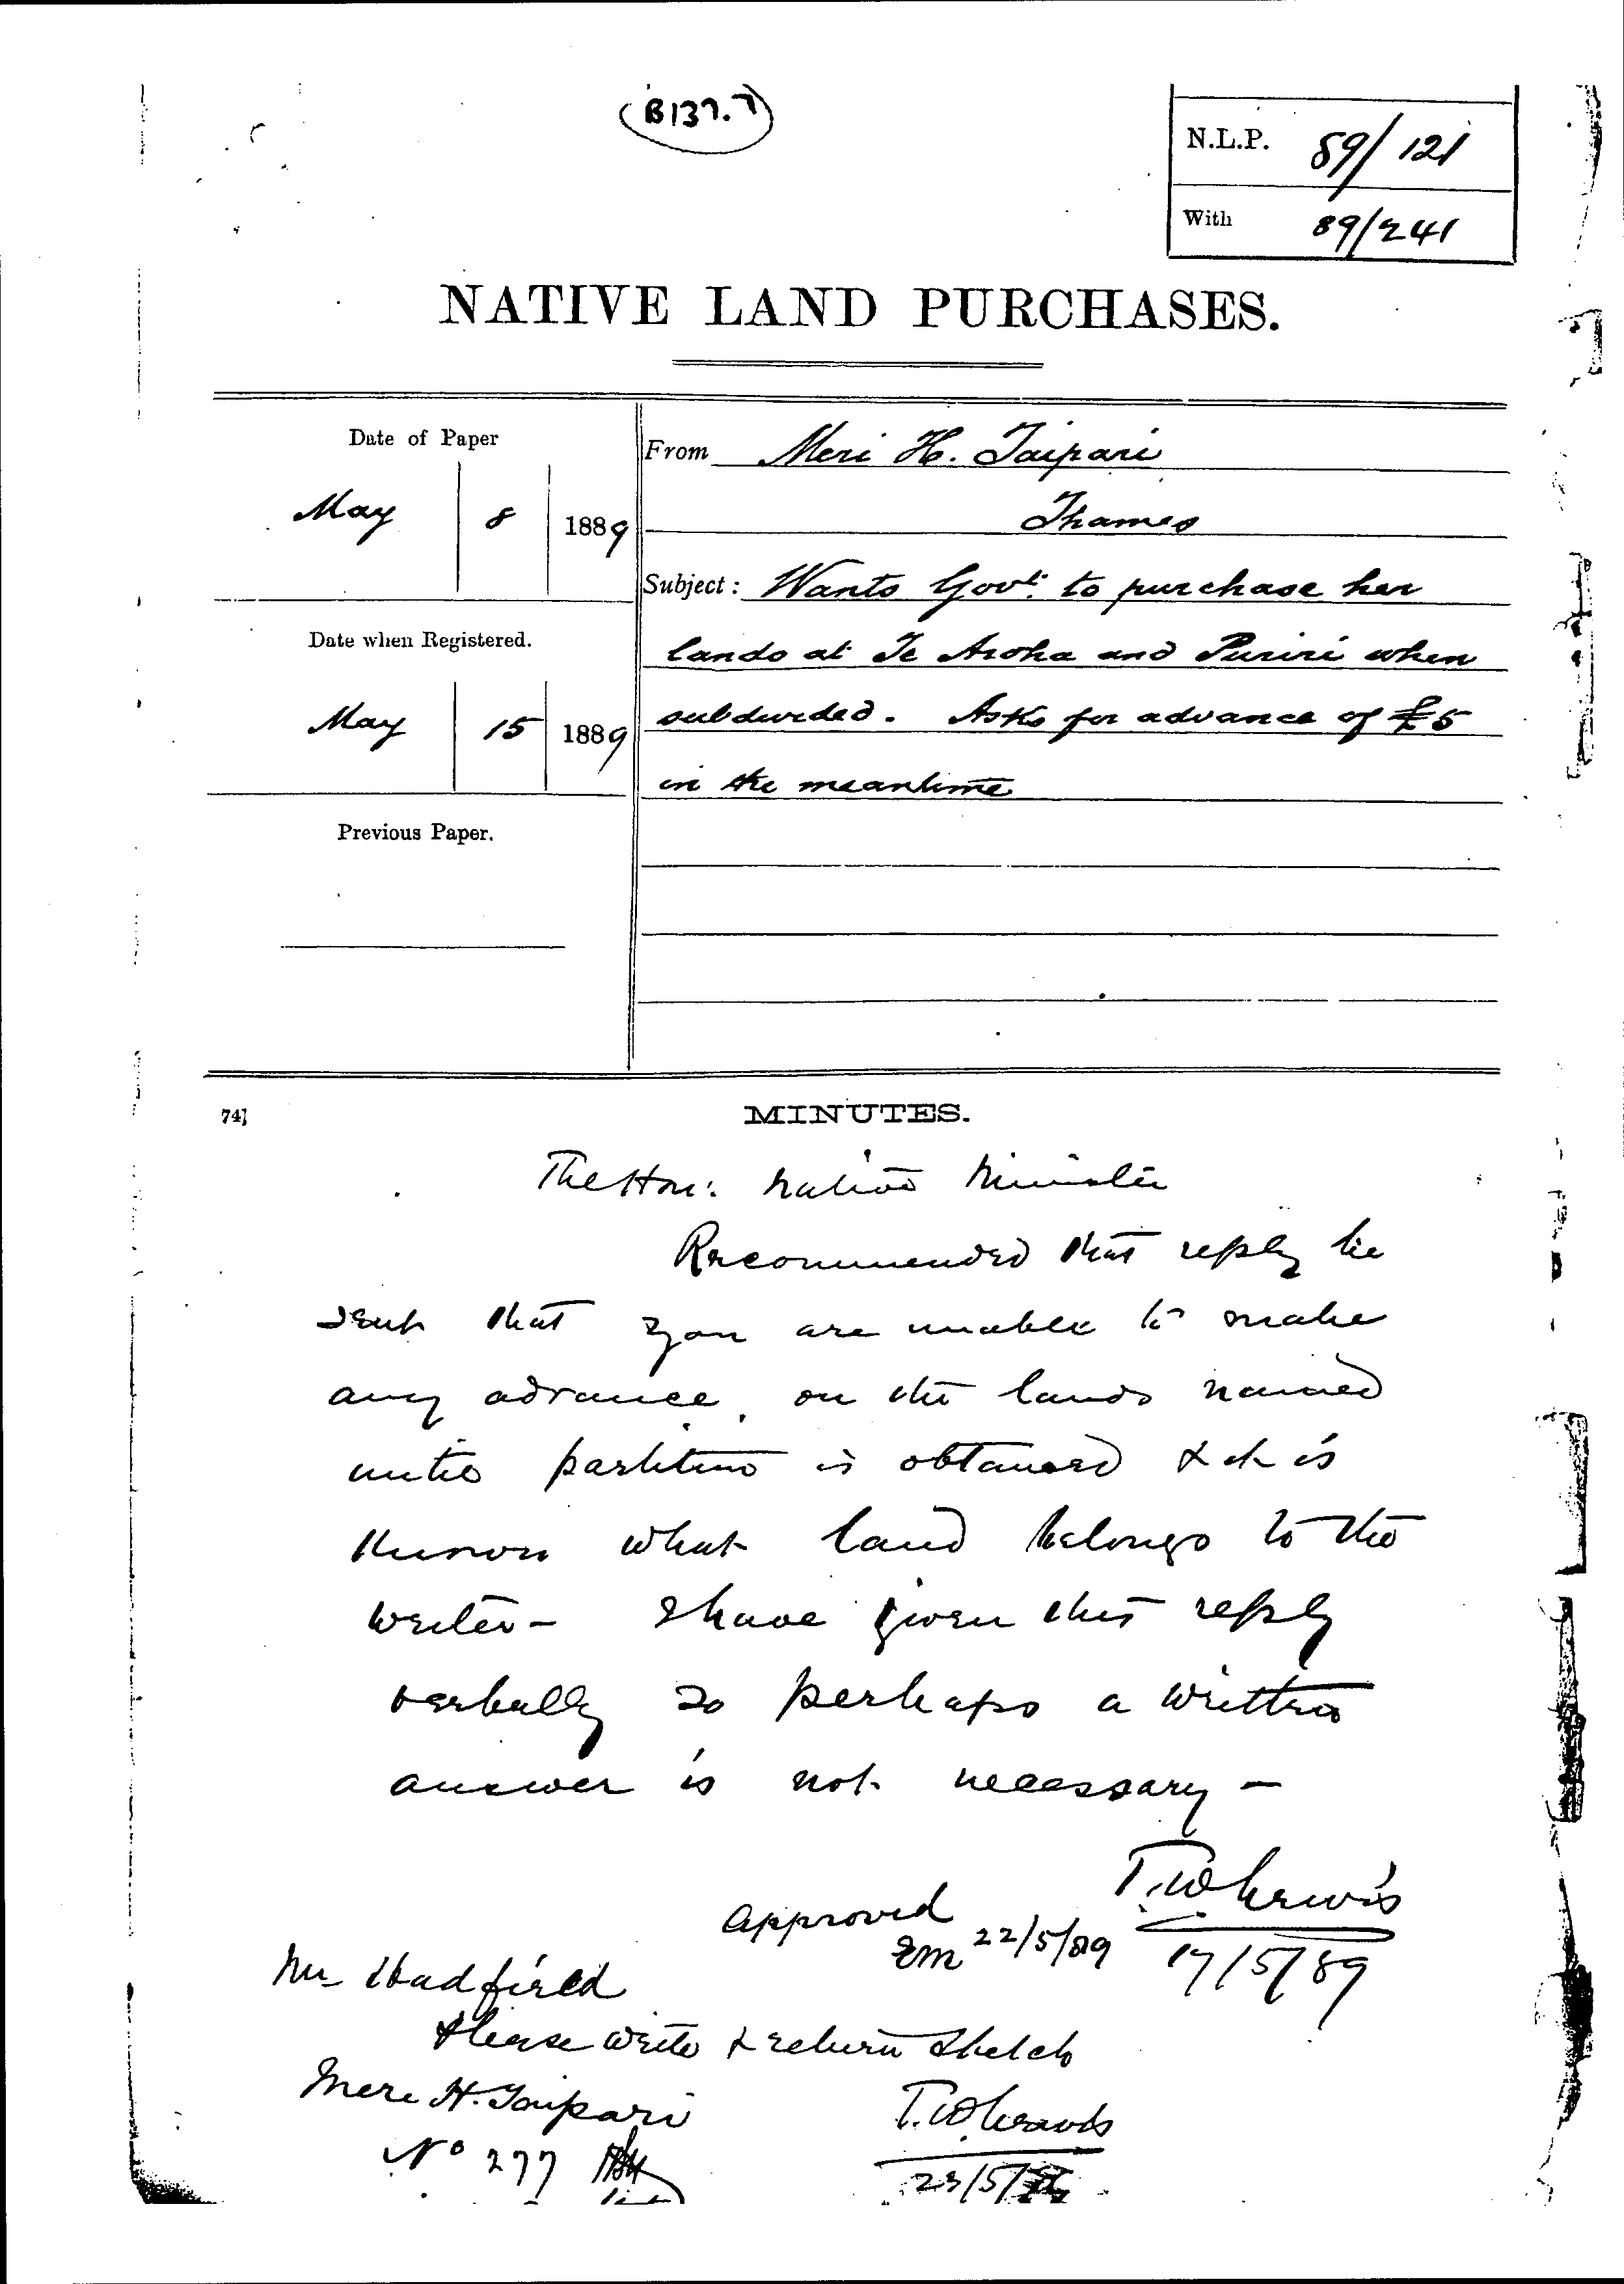 B137.7
N.L.P. 89/121
With 89/241
NATIVE LAND PURCHASES.
Date of Paper
May 8 1889
From Meri H. Taipari
Thames
Subject: Wants Govt. to purchase her
lands at Te Aroha and Puriri when
subdivided. Asks for advance of £5
in the meantime
Date when Registered.
May 15 1889
Previous Paper.
74]
MINUTES.
The Hon: Native Minister
Recommended that reply be
sent that you are unable to make
any advance on the lands named
until partition is obtained & it is
known what land belongs to the
writer - I have given this reply
verbally so perhaps a written
answer is not necessary -
T.W. Lewis
17/5/89
Approved
EM 22/5/89
Mr Hadfield
Please write & return sketch
T.W. Lewis
23/5/
Mere H. Taipari
No 277